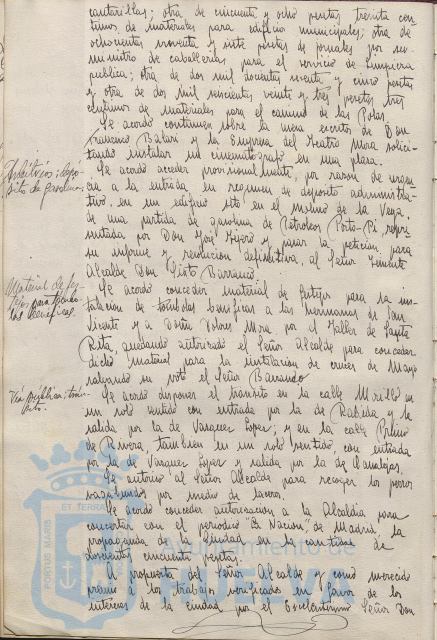 cantarillas; otra de cincuenta y ocho pesetas treinta cen-
timos de materiales para edificios municipales; otra de
ochocientas noventa y siete pesetas de jornales por su-
ministro de caballerias para el servicio de limpieza
publica; otra de dos mil doscientas noventa y cinco pesetas
y otra de dos mil seiscientas veinte y tres pesetas tres
centimos de materiales para el camino de las Polas.
Se acordó continuen sobre la mesa escritos de Don
Francisco Balari y la Empresa del Teatro Mora solici-
tando instalar un cinematografo en una plaza.
Arbitrios: depó-
sito de gasolina.
Se acordó acceder provisionalmente, por razon de urgen-
cia a la entrada, en regimen de deposito administra-
tivo, en un edificio sito en el molino de la Vega,
de una partida de gasolina de Petroleos Porto-Pi repre-
sentada por Don José y pasar la petición para
su informe y resolución definitiva, al Señor Teniente
Alcalde Don Sixto Barranco.
Material de fes-
tejos para tómbo-
las beneficas.
Se acordó conceder material de festejos para la ins-
talación de tombolas beneficas a las hermanas de San
Vicente y a Doña Dolores Mora por el Taller de Santa
Rita, quedando autorizado el Señor Alcalde para conceder
dicho material para la instalación de cruces de Mayo
salvando su voto el Señor Barranco
Via pública: trán-
sito.
Se acordó disponer el transito en la calle Murillo en
un solo sentido con entrada por la de Rabida y sa-
lida por la de Vazquez Lopez; y en la calle Primo
de Rivera, tambien en un solo sentido, con entrada
por la de Vazquez Lopez y salida por la de Canalejas.
Se autorizó al Señor Alcalde para recoger los perros
vagabundos por medio de laceros.
Se acordó conceder autorización a la Alcaldía para
concertar con el periodico "La Nacion", de Madrid, la
propaganda de la ciudad en la cantidad de
doscientas cincuenta pesetas.
A propuesta del Señor Alcalde y como merecido
premio a los trabajos verificados en favor de los
intereses de la ciudad por el Excelentisimo Señor Don
PORTUS MARIS ET TERRAE
Ayuntamiento de
HUELVA